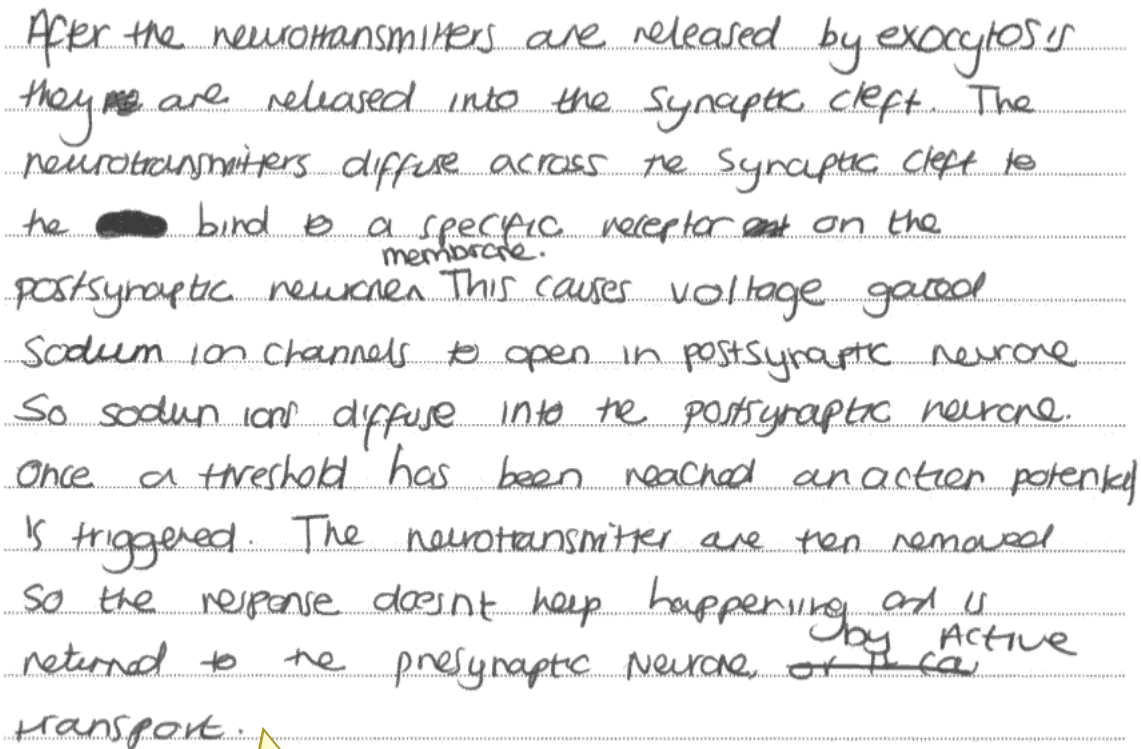 After the neurotransmitters are released by exocytosis
they are released into the synaptic cleft. The
neurotransmitters diffuse across the synaptic cleft to
the bind to a specific receptor on the
membrane.
postsynaptic neurone This causes voltage gated
Sodium ion channels to open in postsynaptic neurone
So sodium ions diffuse into the postsynaptic neurone.
Once a threshold has been reached an action potential
is triggered. The neurotransmitter are then removed
So the response doesnt keep happening and is
by Active
returned to the presynaptic Neurone,
transport.